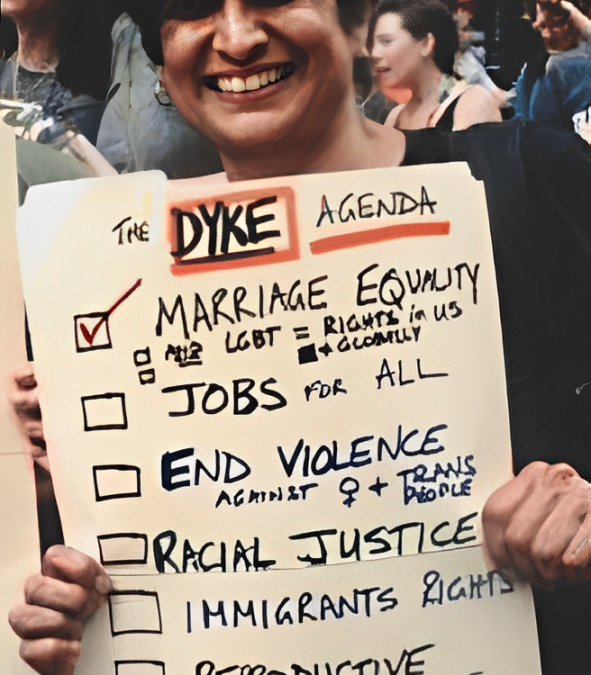 THE DYKE AGENDA
MARRIAGE EQUALITY
LGBT = RIGHTS in US
+ GLOBALLY
JOBS FOR ALL
END VIOLENCE
AGAINST ♀ + TRANS
PEOPLE
RACIAL JUSTICE
IMMIGRANTS RIGHTS
REPRODUCTIVE